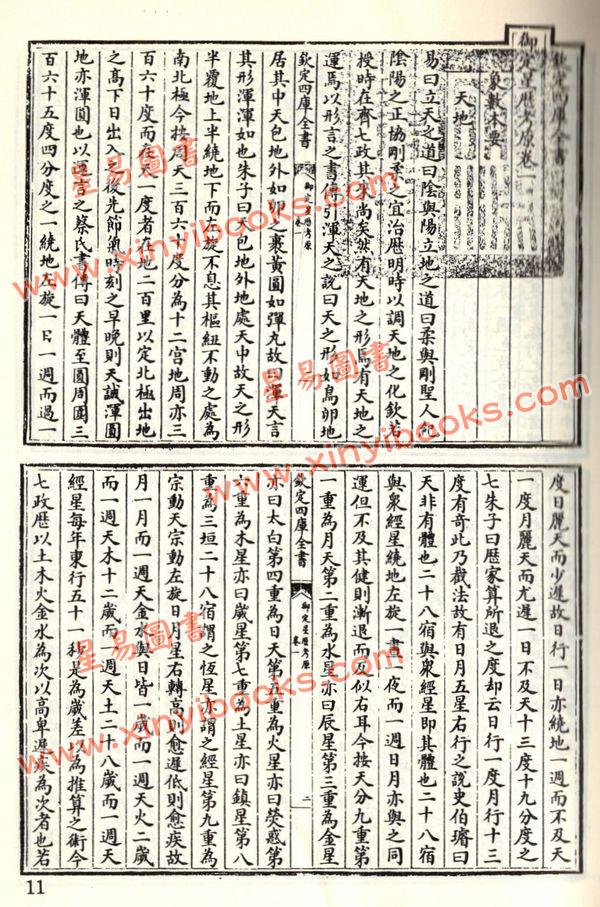 御定星歷考原卷一
欽定四庫全書
象數本要
天地
易曰立天之道曰陰與陽立地之道曰柔與剛聖人命
陰陽之正協剛柔之宜治歷明時以調天地之化欽若
授時在齊七政其來尚矣然有天地之形焉有天地之
運焉以形言之書傳引渾天之說曰天之形如鳥卵地
居其中天包地外如卵之裹黃圓如彈丸故曰渾天言
其形渾渾如也朱子曰天包地外地處天中故天之形
半覆地上半繞地下而左旋不息其樞紐不動之處為
南北極今按周天三百六十度分為十二宮地周亦三
百六十度而在天一度者在地二百里以定北極出地
之高下日出入之後先節氣時刻之早晚則天誠渾圓
地亦渾圓也以運言之蔡氏書傳曰天體至圓周圍三
百六十五度四分度之一繞地左旋一日一週而過一
欽定四庫全書
御定星歷考原
卷一
度日麗天而少遲故日行一日亦繞地一週而不及天
一度月麗天而尤遲一日不及天十三度十九分度之
七朱子曰歷家算所退之度却云日行一度月行十三
度有奇此乃截法故有日月五星右行之說史伯璿曰
天非有體也二十八宿與衆經星即其體也二十八宿
與衆經星繞地左旋一晝一夜而一週日月亦與之同
運但不及其健則漸退而反似右耳今按天分九重第
一重為月天第二重為水星亦曰辰星第三重為金星
欽定四庫全書
御定星歷考原
卷一
二
亦曰太白第四重為日天第五重為火星亦曰熒惑第
六重為木星亦曰歲星第七重為土星亦曰鎮星第八
重為三垣二十八宿謂之恆星亦謂之經星第九重為
宗動天宗動左旋日月星右轉高則愈遲低則愈疾故
月一月而一週天金水與日皆一歲而一週天火二歲
而一週天木十二歲而一週天土二十八歲而一週天
經星每年東行五十一秒是為歲差以為推算之術今
七政歷以土木火金水為次以高卑遲疾為次者也若
11
星易圖書
www.xinyibooks.com
星易圖書
www.xinyibooks.com
星易圖書
www.xinyibooks.com
星易圖書
www.xinyibooks.com